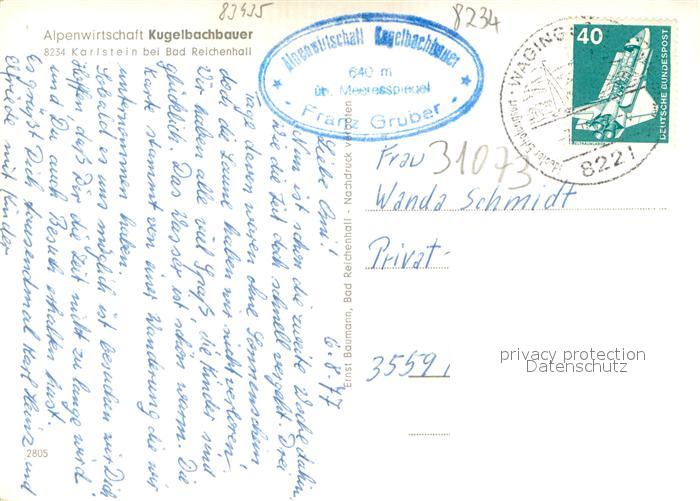 83435
8234
Alpenwirtschaft Kugelbachbauer
8234 Karlstein bei Bad Reichenhall
Alpenwirtschaft Kugelbachbauer
640 m
üb. Meeresspiegel
Franz Gruber
WAGING
8221
40
DEUTSCHE BUNDESPOST
WELTRAUMLABOR
6.8.77
Liebe Omi!
Nun ist schon die zweite Woche dahin,
wie die Zeit doch schnell vergeht. Drei
Tage davon waren ohne Sonnenschein
doch die Laune haben wir nicht verloren,
Wir haben alle viel Spaß, die Kinder sind
glücklich. Das Wasser ist schön warm. Die
Karte stammt von einer Wanderung die wir
unternommen haben.
Sobald es uns möglich ist besuchen wir Dich
Hoffen daß Dir die Zeit nicht zu lange wird
und Du auch Besuch erhalten hast.
Es grüßt Dich tausendmal Karl Heinz und
Elfriede mit Kinder
Ernst Baumann, Bad Reichenhall - Nachdruck verboten
Frau 31073
Wanda Schmidt
Privat-
3559
privacy protection
Datenschutz
2805